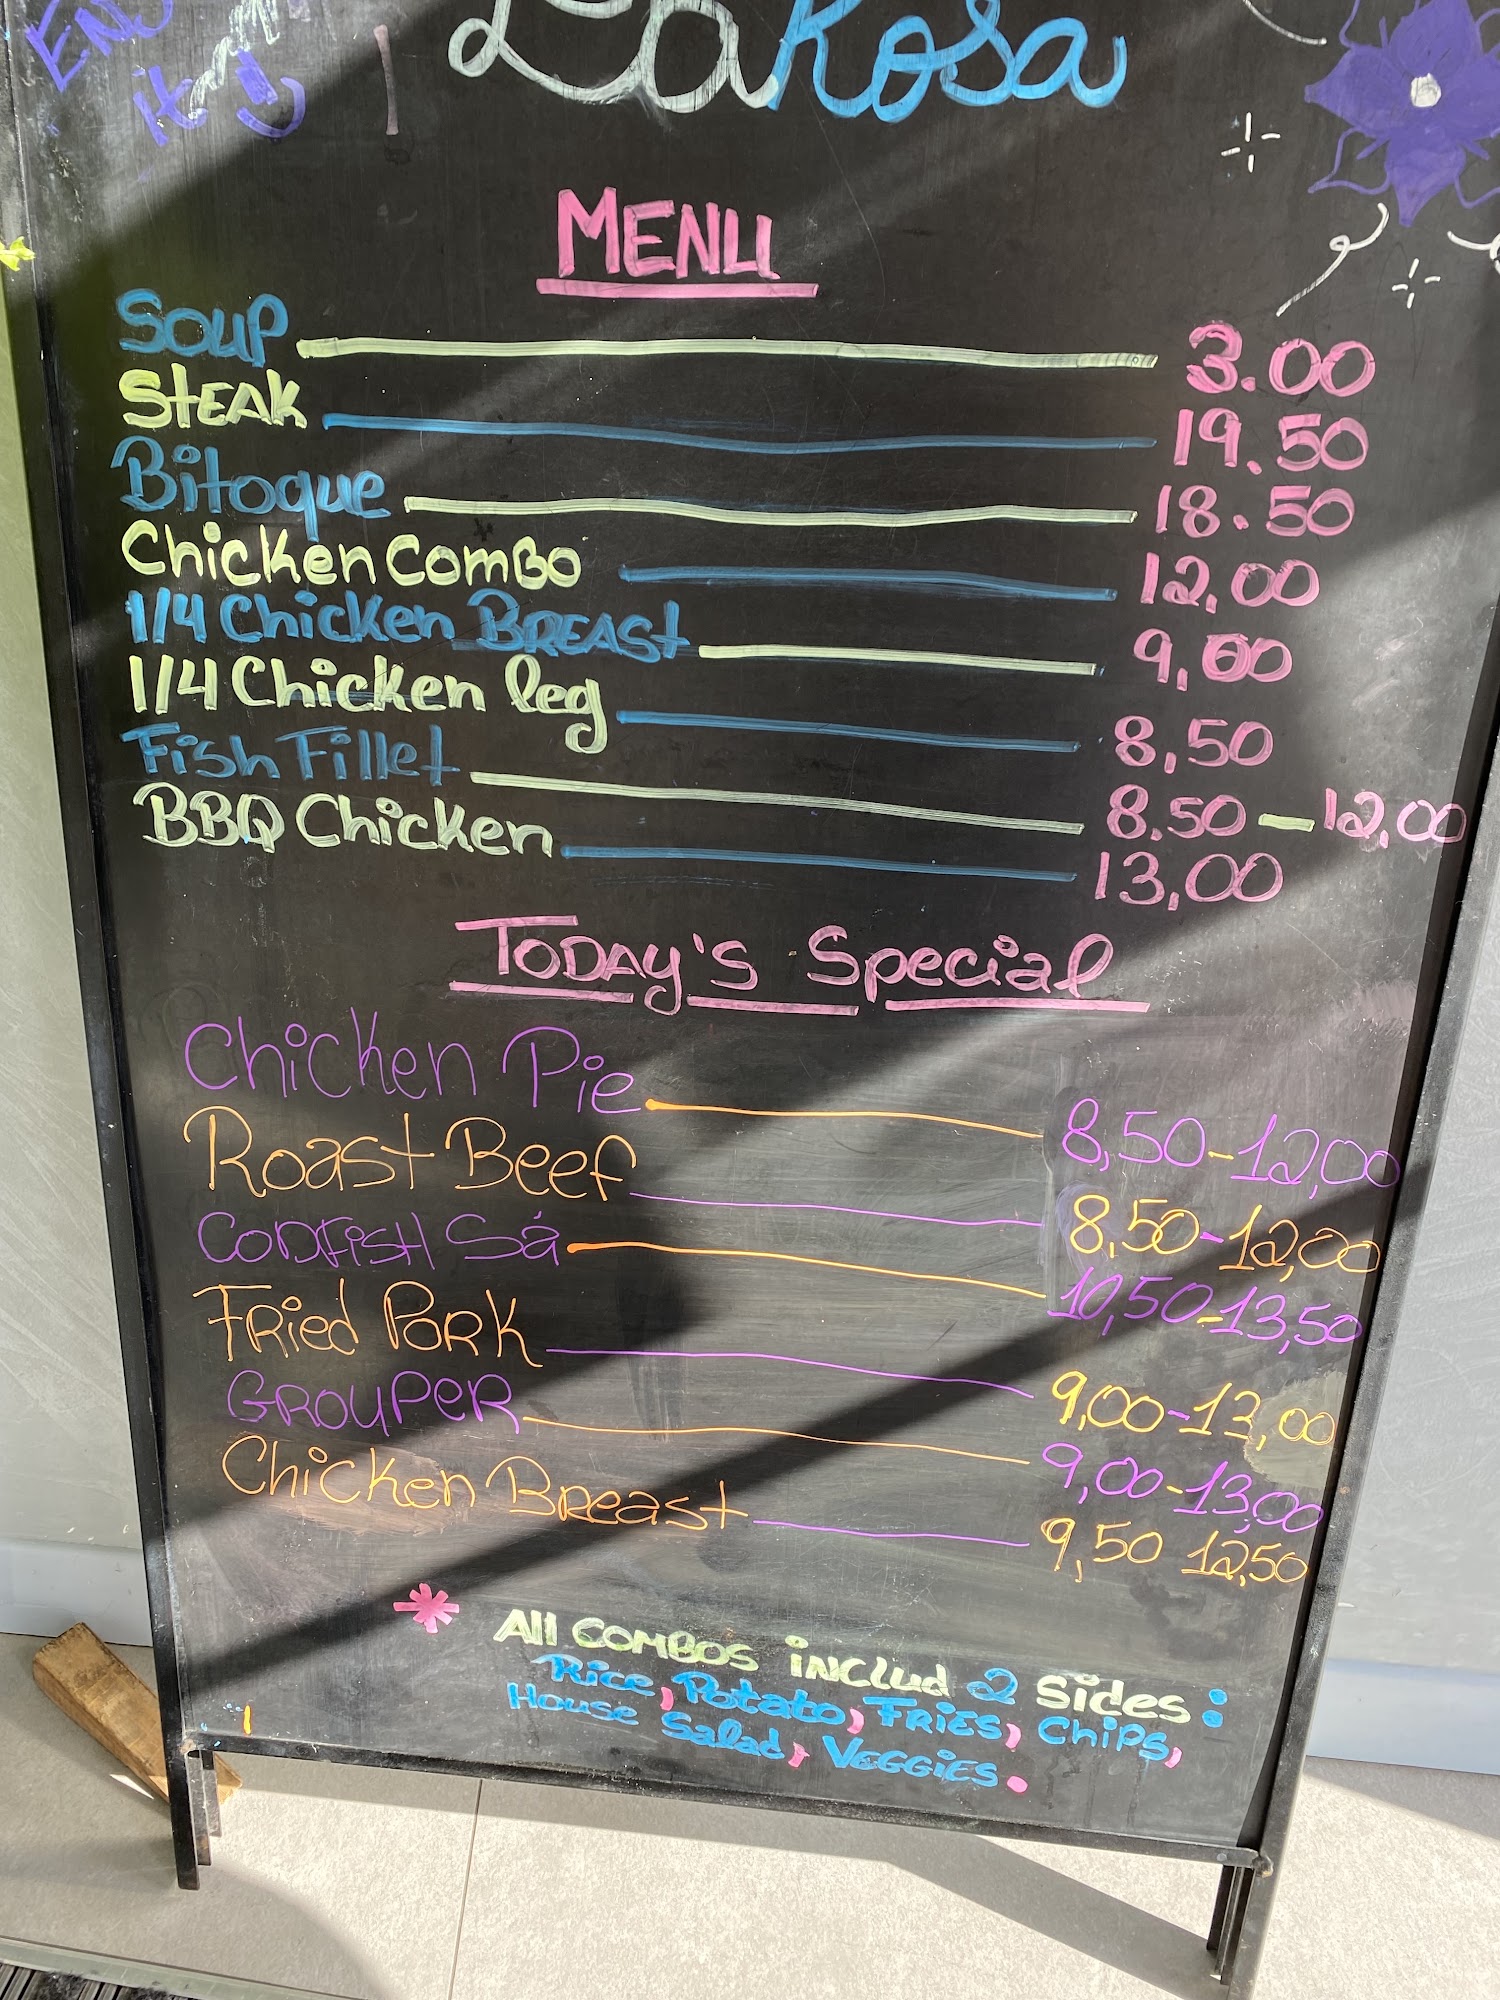 ENJ
it!
LaRosa
MENU
SOUP 3.00
STEAK 19.50
Bitoque 18.50
Chicken COMBO 12,00
1/4 Chicken BREAST 9,00
1/4 Chicken leg 8,50
Fish Fillet 8.50 - 12,00
BBQ Chicken 13,00
TODAY'S Special
Chicken Pie 8,50-12,00
Roast Beef 8,50-12,00
CODFISH Sá 10,50-13,50
FRied PORK 9,00-13,00
GROUPER 9,00-13,00
Chicken BReast 9,50 12,50
* All COMBOS iNClud 2 Sides:
Rice, Potato, FRIES, Chips,
House Salad, VEGGiES.